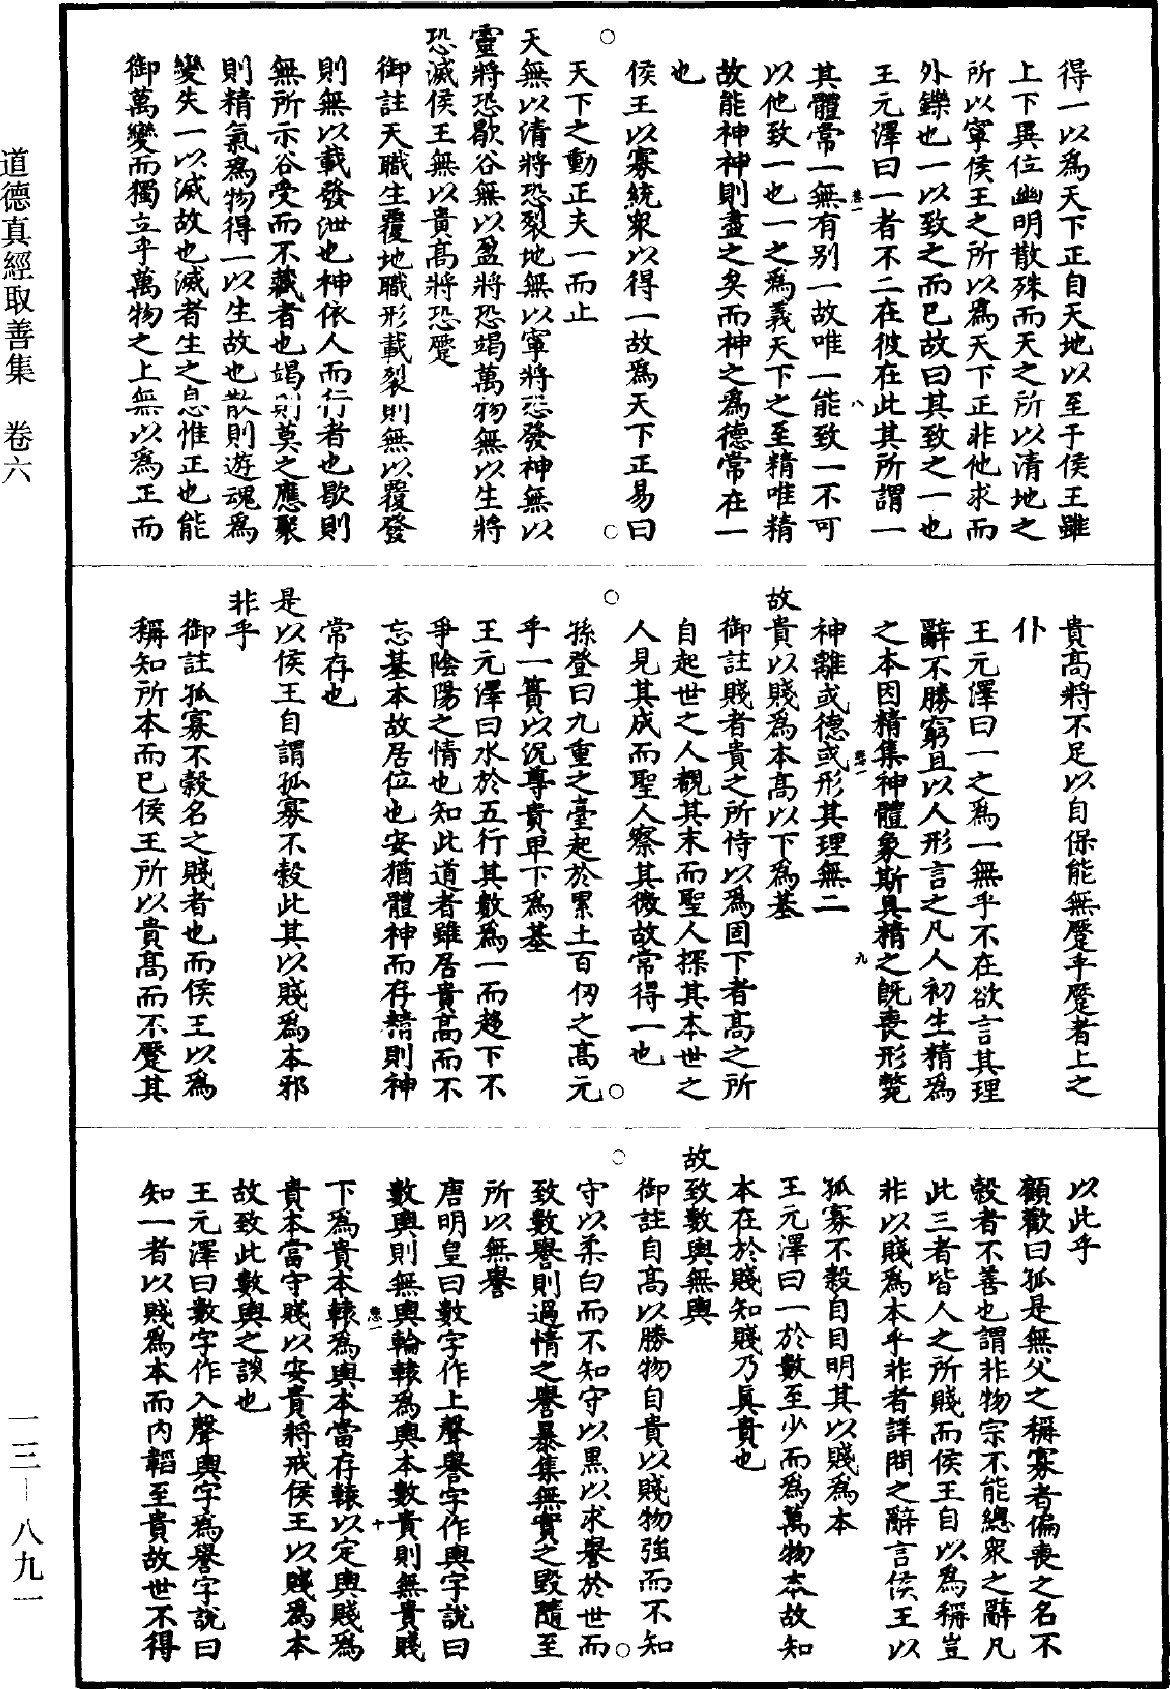 得一以為天下正自天地以至于侯王雖
上下異位幽明散殊而天之所以清地之
所以寧侯王之所以為天下正非他求而
外鑠也一以致之而已故曰其致之一也
王元澤曰一者不二在彼在此其所謂一
其體常一無有別一故唯一能致一不可
以他致一也一之為義天下之至精唯精
故能神神則盡之矣而神之為德常在一
也
侯王以寡統衆以得一故為天下正易曰
天下之動正夫一而止
天無以清將恐裂地無以寧將恐發神無以
靈將恐歇谷無以盈將恐竭萬物無以生將
恐滅侯王無以貴高將恐蹷
御註天職生覆地職形載裂則無以覆發
則無以載發泄也神依人而行者也歇則
無所示谷受而不藏者也竭則莫之應聚
則精氣為物得一以生故也散則遊魂為
變失一以滅故也滅者生之息惟正也能
御萬變而獨立乎萬物之上無以為正而
貴高將不足以自保能無蹷乎蹷者上之
仆
王元澤曰一之為一無乎不在欲言其理
辭不勝窮且以人形言之凡人初生精為
之本因精集神體象斯具精之既喪形斃
神離或德或形其理無二
故貴以賤為本高以下為基
御註賤者貴之所恃以為固下者高之所
自起世之人覩其末而聖人探其本世之
人見其成而聖人察其微故常得一也
孫登曰九重之臺起於累土百仞之高元
乎一簣以沉尊貴卑下為基
王元澤曰水於五行其數為一而趍下不
爭陰陽之情也知此道者雖居貴高而不
忘基本故居位也安猶體神而存精則神
常存也
是以侯王自謂孤寡不穀此其以賤為本邪
非乎
御註孤寡不穀名之賤者也而侯王以為
稱知所本而已侯王所以貴高而不蹷其
以此乎
顧歡曰孤是無父之稱寡者偏喪之名不
穀者不善也謂非物宗不能總衆之辭凡
此三者皆人之所賤而侯王自以為稱豈
非以賤為本乎非者詳問之辭言侯王以
孤寡不穀自目明其以賤為本
王元澤曰一於數至少而為萬物本故知
本在於賤知賤乃真貴也
故致數輿無輿
御註自高以勝物自貴以賤物強而不知
守以柔白而不知守以黑以求譽於世而
致數譽則過情之譽暴集無實之毀隨至
所以無譽
唐明皇曰數字作上聲譽字作輿字說曰
數輿則無輿輪轅為輿本數貴則無貴賤
下為貴本轅為輿本當存轅以定輿賤為
貴本當守賤以安貴將戒侯王以賤為本
故致此數輿之談也
王元澤曰數字作入聲輿字為譽字說曰
知一者以賤為本而內韜至貴故世不得
道德真經取善集 卷六
一三—八九一